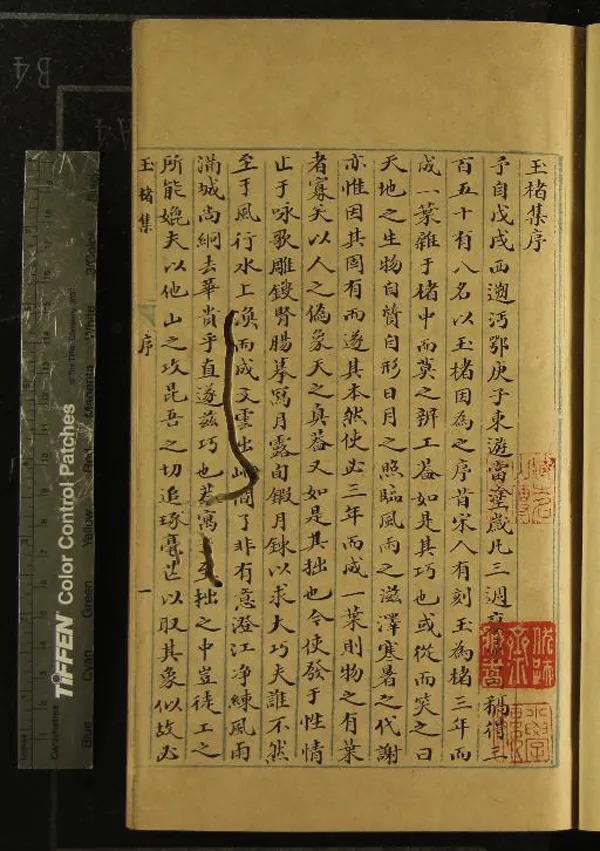 玉楮集序
予自戊戌西遡沔鄂庚子東遊當塗歲凡三週稿得三
百五十有八名以玉楮因為之序昔宋人有刻玉為楮三年而
成一葉雜于楮中而莫之辨工葢如是其巧也或從而笑之曰
天地之生物自賛自形日月之照臨風雨之滋澤寒暑之代謝
亦惟因其固有而遂其本然使必三年而成一葉則物之有葉
者寡矣以人之偽象天之真葢又如是其拙也今使發于性情
止于咏歌雕鎪腎腸摹寫月露旬鍜月鍊以求大巧夫誰不然
至于風行水上渙而成文雲出岫間了非有意澄江净練風雨
滿城尚絅去華貴乎直遂茲巧也若寓至拙之中豈徒工之
所能媲夫以他山之攻昆吾之切追琢毫芒以取其象似故必
玉楮集 序 一
TIFFEN Color Control Patches
Blue Cyan Green Yellow Red Magenta White 3/Color Black
Centimetres
B4
A4